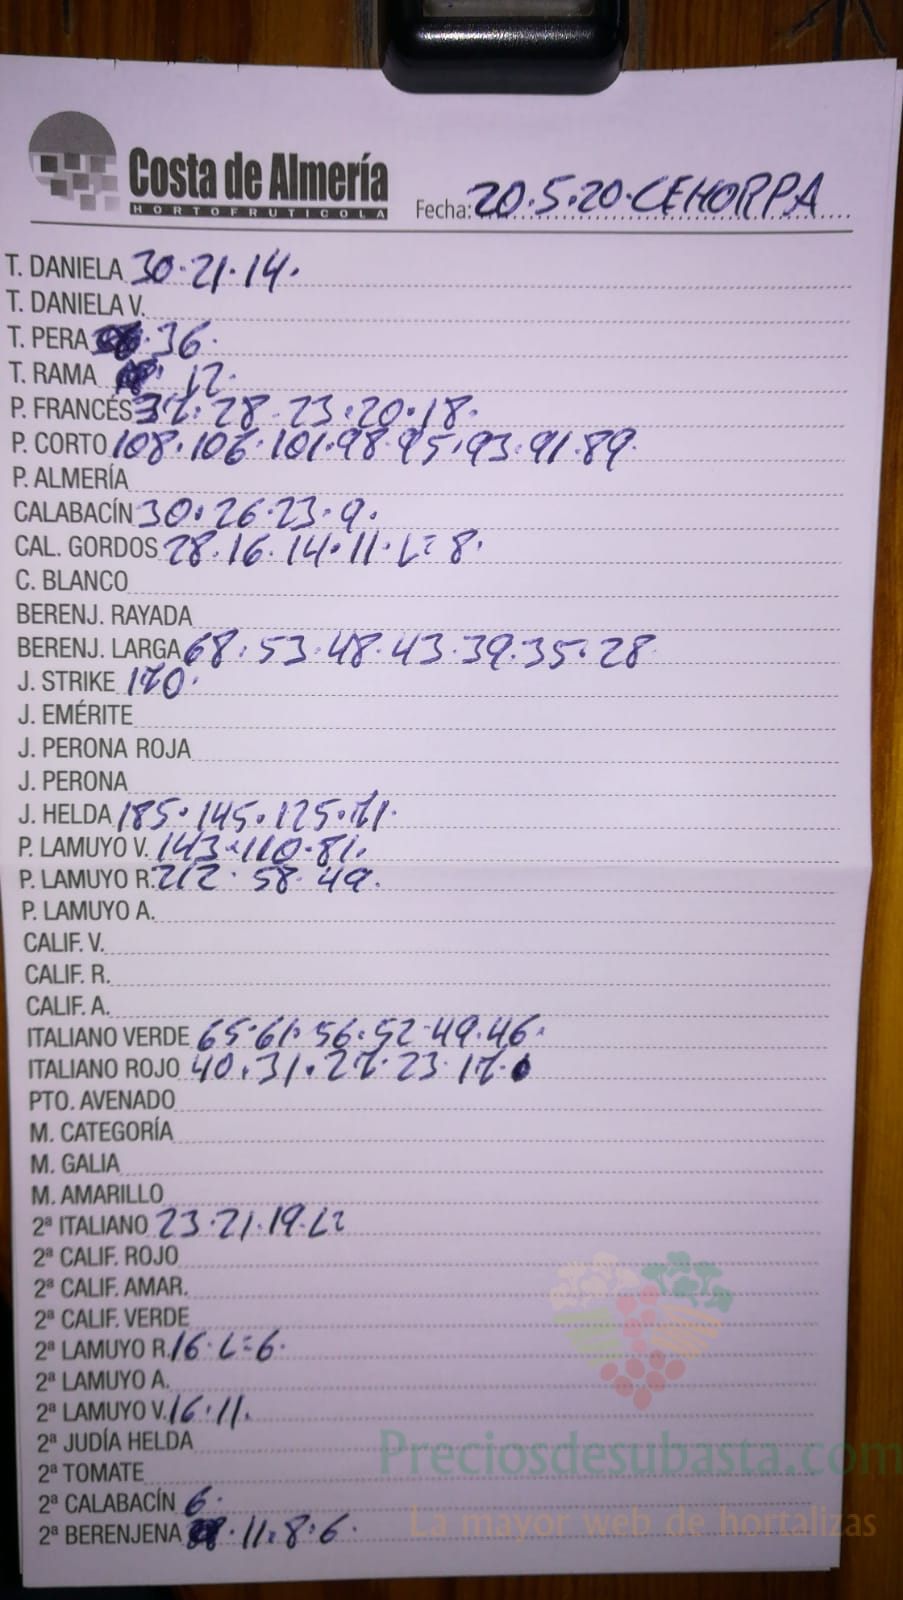 Costa de Almería
HORTOFRUTICOLA
Fecha: 20.5.20. CEHORPA
T. DANIELA 30.21.14.
T. DANIELA V.
T. PERA 36.
T. RAMA 12.
P. FRANCÉS 37. 28. 23.20.18.
P. CORTO 108.106.101.98.95.93.91.89.
P. ALMERÍA
CALABACÍN 30.26.23.9.
CAL. GORDOS 28.16.14.11.L=8.
C. BLANCO
BERENJ. RAYADA
BERENJ. LARGA 68.53.48.43.39.35.28
J. STRIKE 170.
J. EMÉRITE
J. PERONA ROJA
J. PERONA
J. HELDA 185.145.125.71.
P. LAMUYO V. 143.110.81.
P. LAMUYO R. 58.49.
P. LAMUYO A.
CALIF. V.
CALIF. R.
CALIF. A.
ITALIANO VERDE 65.61.56.52.49.46.
ITALIANO ROJO 40.31.27.23.17.
PTO. AVENADO
M. CATEGORÍA
M. GALIA
M. AMARILLO
2ª ITALIANO 23.21.19.
2ª CALIF. ROJO
2ª CALIF. AMAR.
2ª CALIF. VERDE
2ª LAMUYO R. 16.L=6.
2ª LAMUYO A.
2ª LAMUYO V. 16.11.
2ª JUDÍA HELDA
2ª TOMATE
2ª CALABACÍN 6.
2ª BERENJENA 11.8.6.
Preciosdesubasta.com
La mayor web de hortalizas